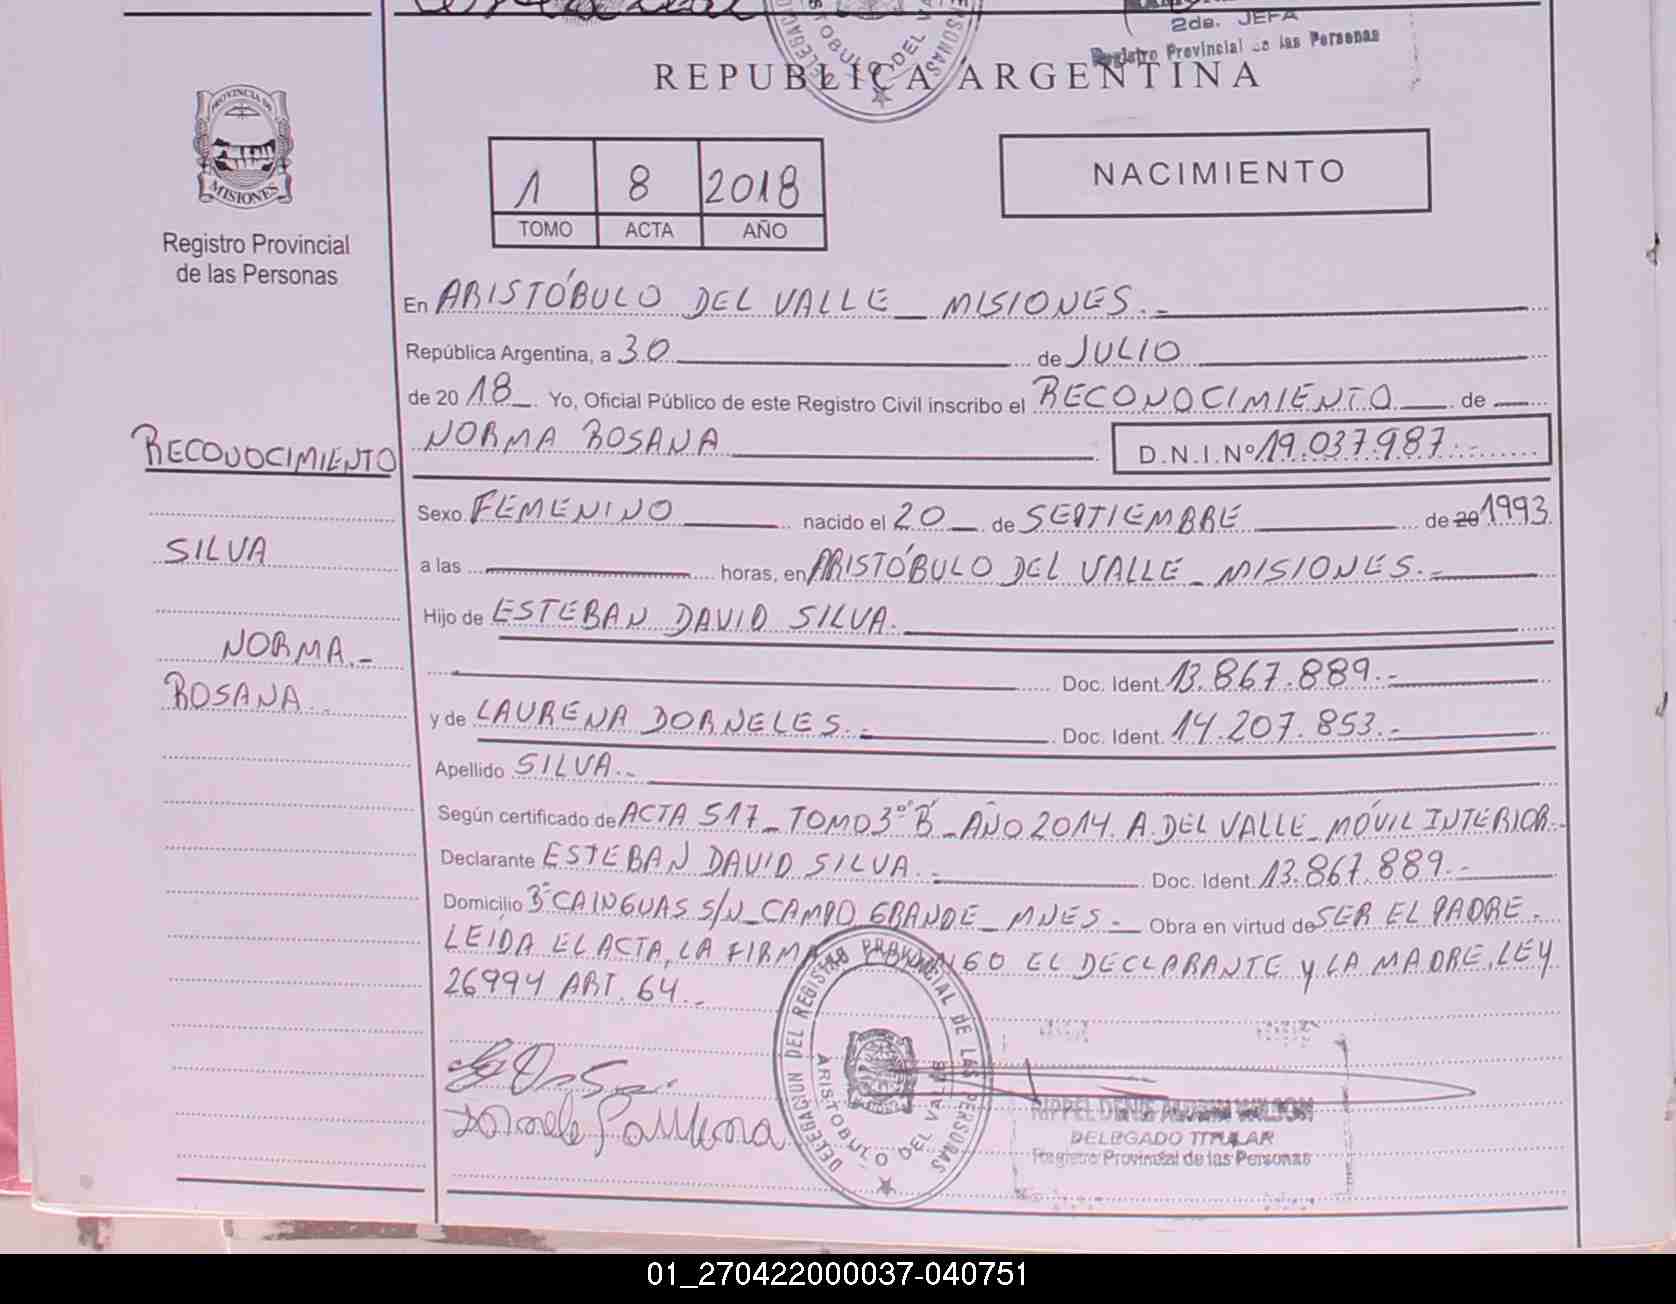 2da. JEFA
Registro Provincial de las Personas
REPUBLICA ARGENTINA
PROVINCIA DE
MISIONES
Registro Provincial
de las Personas
1 8 2018
TOMO ACTA AÑO
NACIMIENTO
En ARISTÓBULO DEL VALLE _ MISIONES.-
República Argentina, a 30 de JULIO
de 2018 . Yo, Oficial Público de este Registro Civil inscribo el RECONOCIMIENTO de
NORMA ROSANA D.N.I.Nº 19.037.987.-
RECONOCIMIENTO
SILVA
NORMA.-
ROSANA.
Sexo FEMENINO nacido el 20 de SEPTIEMBRE de 20 1993
a las horas, en ARISTÓBULO DEL VALLE _ MISIONES.-
Hijo de ESTEBAN DAVID SILVA.
Doc. Ident. 13.867.889.-
y de LAURENA DORNELES.- Doc. Ident. 14.207.853.-
Apellido SILVA.-
Según certificado de ACTA 517 _ TOMO 3º"B" _ AÑO 2014. A. DEL VALLE _ MÓVIL INTERIOR.-
Declarante ESTEBAN DAVID SILVA. Doc. Ident. 13.867.889.-
Domicilio Bº CAINGUAS S/N _ CAMPO GRANDE _ MNES.- Obra en virtud de SER EL PADRE.-
LEIDA EL ACTA, LA FIRMA CONMIGO EL DECLARANTE y LA MADRE, LEY
26994 ART. 64.-
DELEGACION DEL REGISTRO PROVINCIAL DE LAS PERSONAS
ARISTOBULO DEL VALLE
DELEGADO TITULAR
Registro Provincial de las Personas
01_270422000037-040751